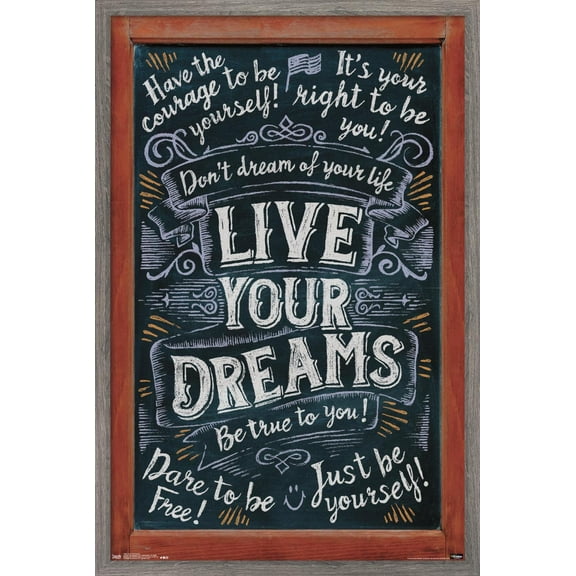 Have the
courage to be
yourself!
It's your
right to be
you!
Don't dream of your life
LIVE
YOUR
DREAMS
Be true to you!
Dare to be
Free!
Just be
yourself!